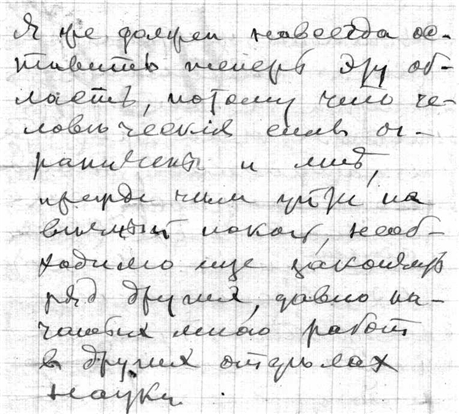 Я же должен навсегда ос-
тавить теперь эту об-
ласть, потому что че-
ловеческія силы ог-
раничены и мнѣ,
прежде чем уйти на
вѣчный покой, необ-
ходимо еще закончить
ряд других, давно на-
чатых мною работ
в других отделах
науки.